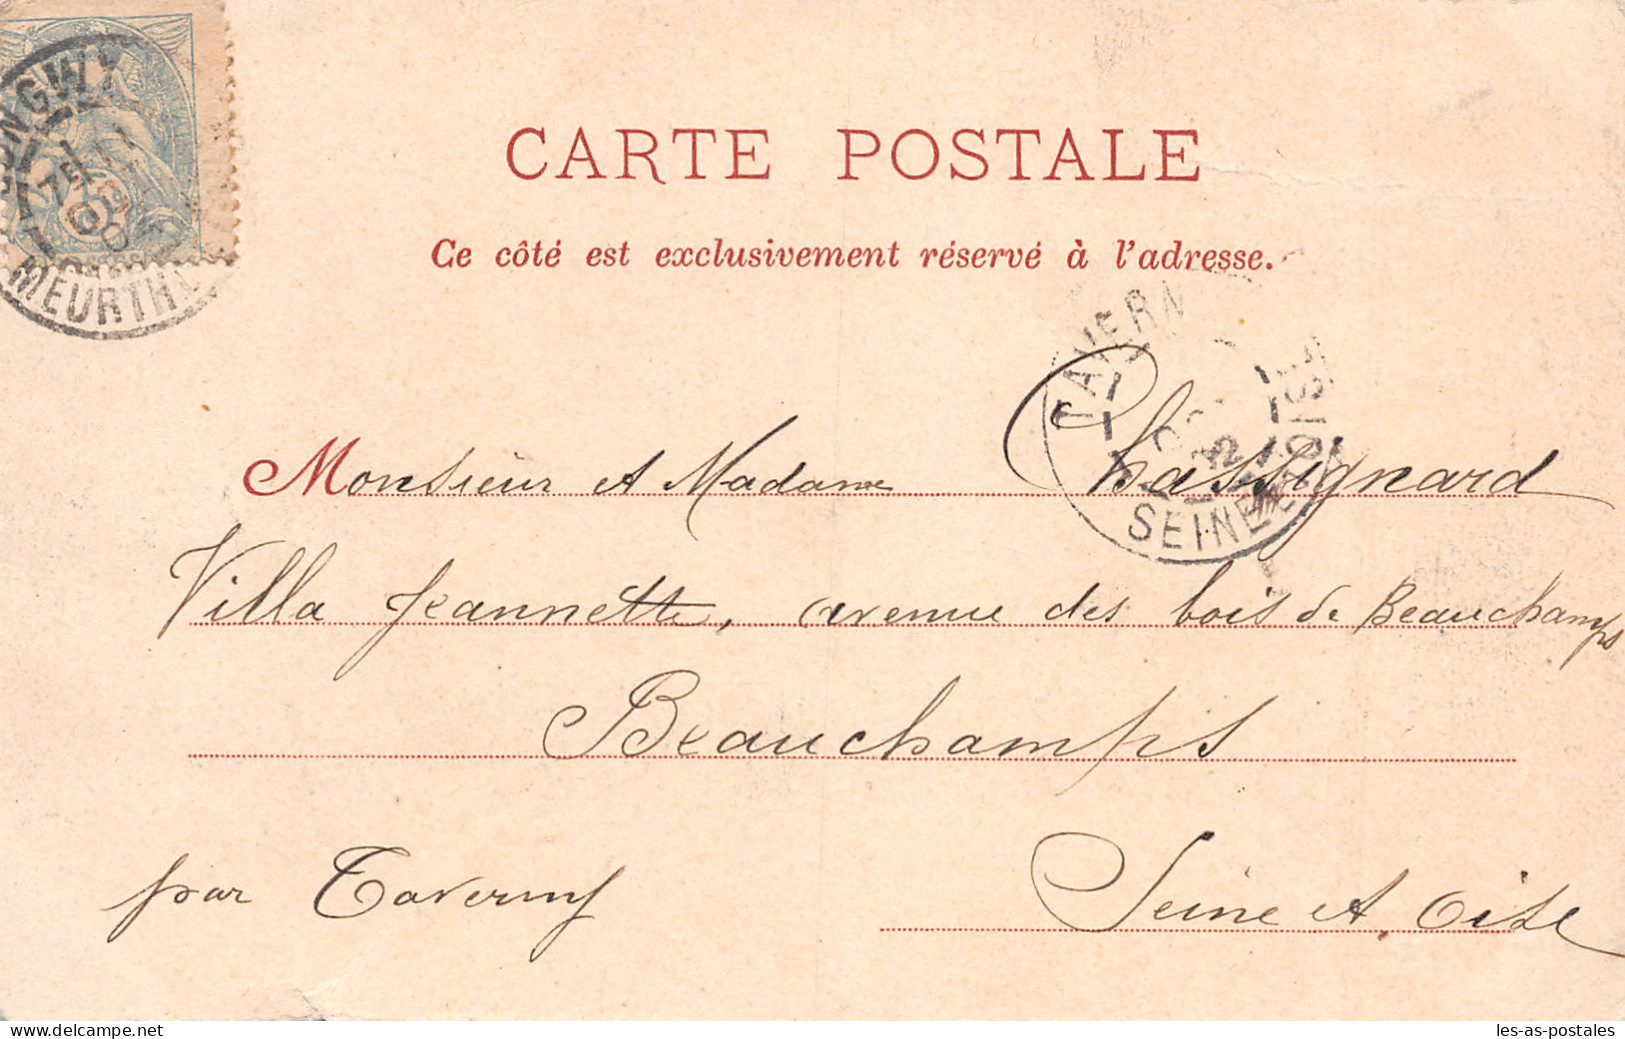 CARTE POSTALE
Ce côté est exclusivement réservé à l'adresse.
LONGWY
MEURTHE
TAVERN
SEINE
OISE
Monsieur et Madame Chassignard
Villa Jeannette, avenue des bois de Beauchamps
Beauchamps
par Taverny
Seine et Oise
www.delcampe.net
les-as-postales